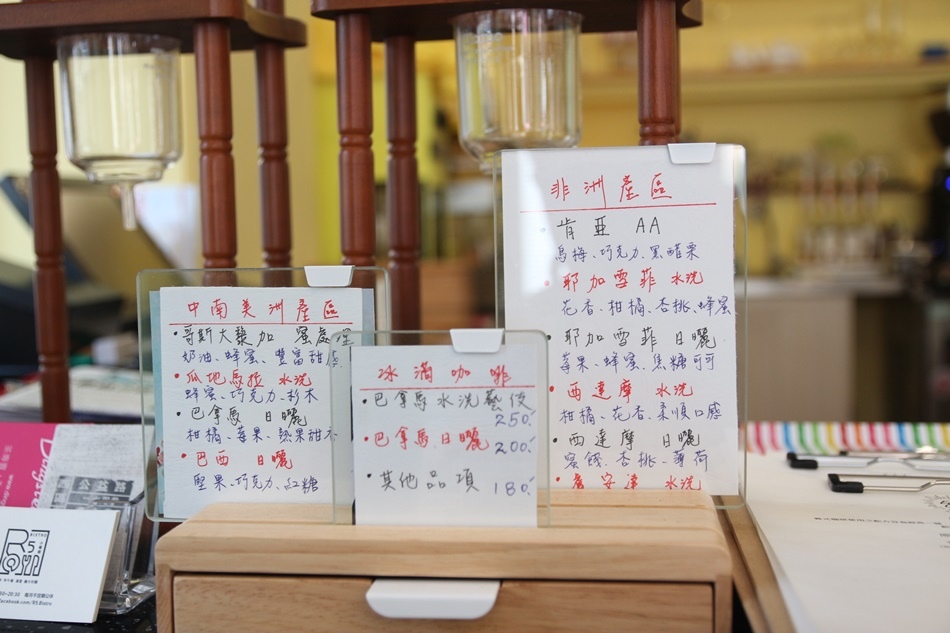 中南美洲產區
•哥斯大黎加 蜜處理
奶油、蜂蜜、豐富甜感
•瓜地馬拉 水洗
蜂蜜、巧克力、杉木
•巴拿馬 日曬
柑橘、莓果、熱果甜
•巴西 日曬
堅果、巧克力、紅糖
冰滴咖啡
•巴拿馬水洗藝伎
250.
•巴拿馬日曬 200.
•其他品項 180.
非洲產區
•肯亞 AA
烏梅、巧克力、黑醋栗
•耶加雪菲 水洗
花香、柑橘、杏桃、蜂蜜
•耶加雪菲 日曬
莓果、蜂蜜、焦糖可可
•西達摩 水洗
柑橘、花香、柔順口感
•西達摩 日曬
蜜餞、杏桃、薄荷
•盧安達 水洗
公益路
BISTRO
R5